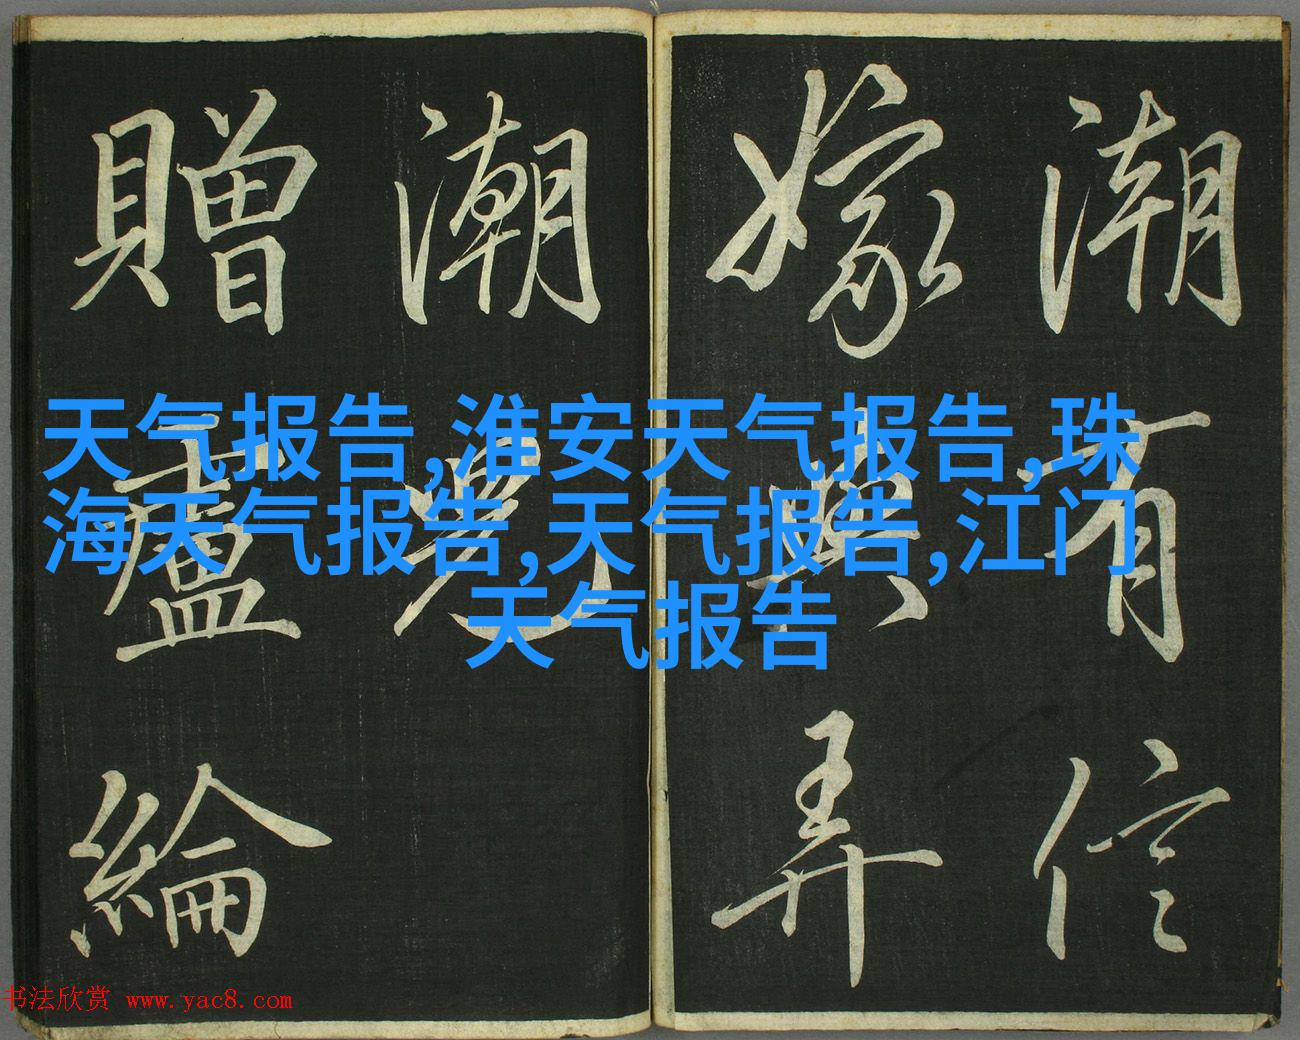 潮有信
嫁與弄
潮兒
贈盧綸
天气报告,淮安天气报告,珠
海天气报告,天气报告,江门
天气报告
书法欣赏 www.yac8.com